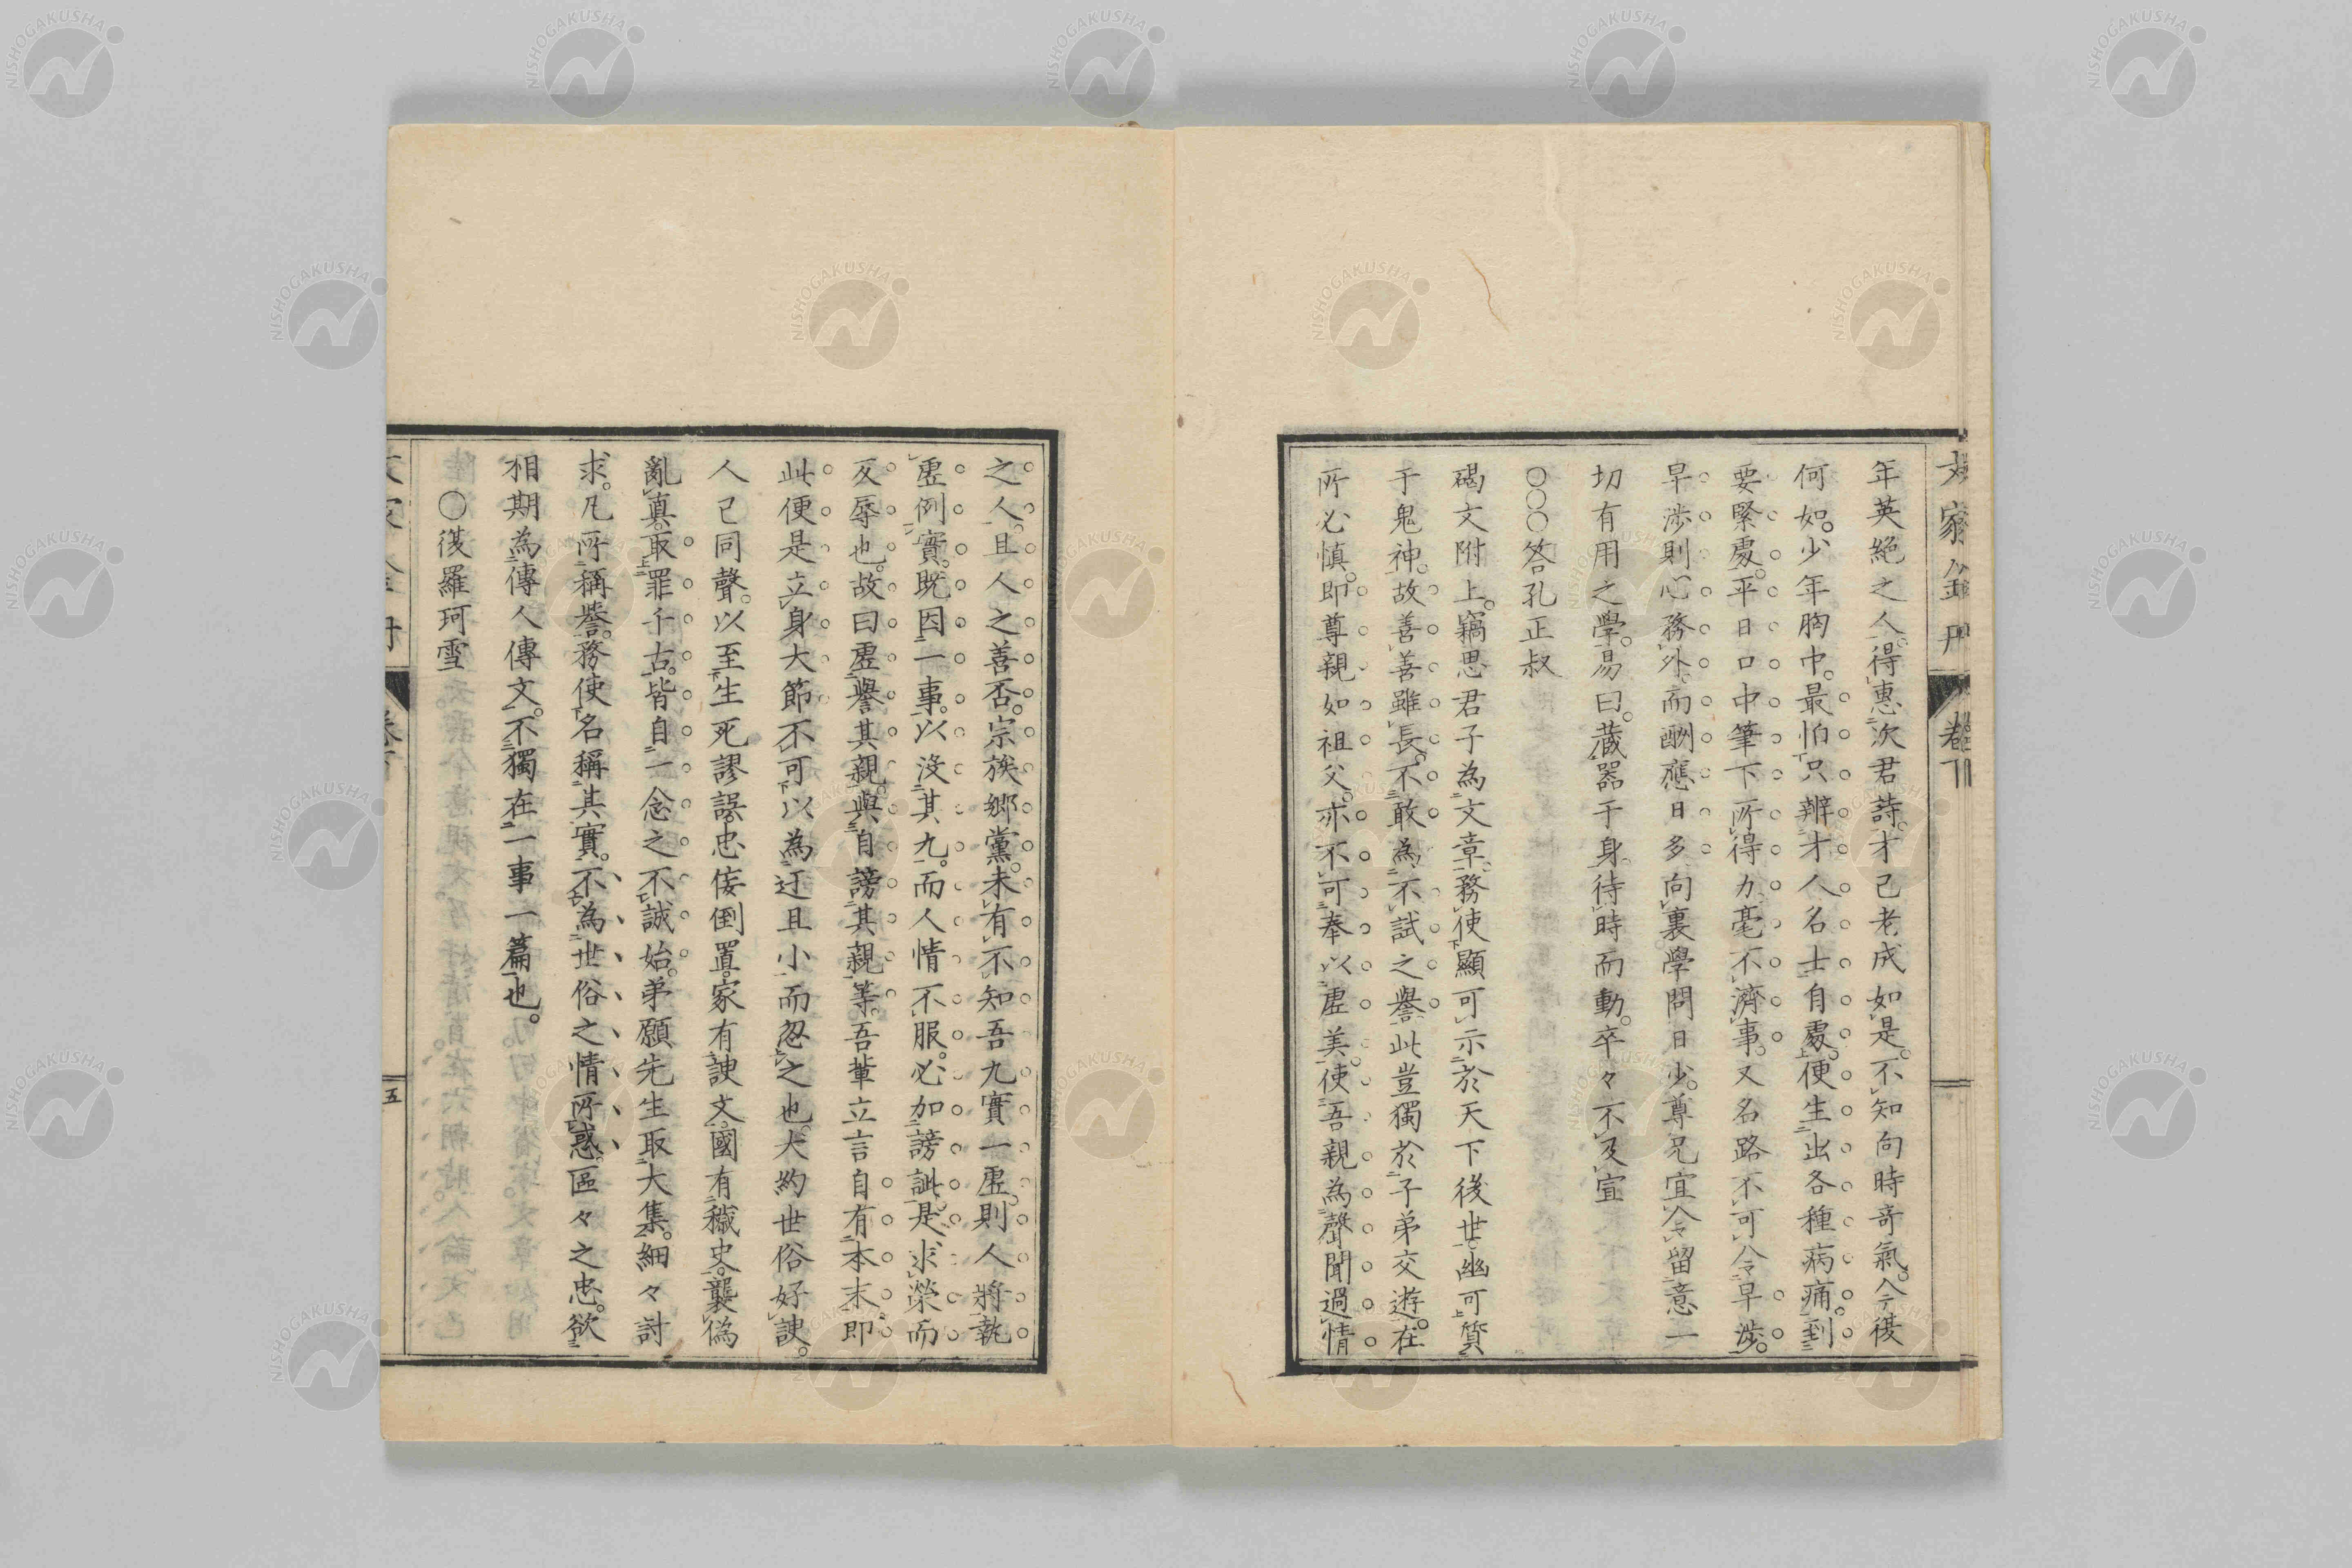 文家金丹 卷下
年英絕之人。得惠次君詩。才已老成如是。不知向時奇氣。今復
何如。少年胸中。最怕只辨才人名士自處。便生出各種病痛。到
要緊處。平日口中筆下所得力。毫不濟事。又名路不可令早涉。
早涉則心務外。而酬應日多。向裏學問日少。尊兄宜令留意一
切有用之學。易曰。藏器于身。待時而動。卒々不及宣
○○○答孔正叔
碣文附上。竊思君子為文章。務使顯可示於天下後世。幽可質
于鬼神。故善善雖長。不敢為不試之譽。此豈獨於子弟交遊。在
所必慎。即尊親如祖父。亦不可奉以虛美。使吾親為聲聞過情
之人。且人之善否。宗族鄉黨。未有不知吾九實一虛。則人將執
虛例實。既因一事。以沒其九。而人情不服。必加謗訕。是求榮而
反辱也。故曰虛譽其親。與自謗其親等。吾輩立言自有本末。即
此便是立身大節。不可以為迂且小而忽之也。大約世俗好諛。
人己同聲。以至生死謬誤。忠佞倒置。家有諛文。國有穢史。襲偽
亂真。取罪千古。皆自一念之不誠始。弟願先生取大集。細々討
求。凡所稱譽。務使名稱其實。不為世俗之情所惑。區々之忠。欲
相期為傳人傳文。不獨在一事一篇也。
○復羅珂雪
五